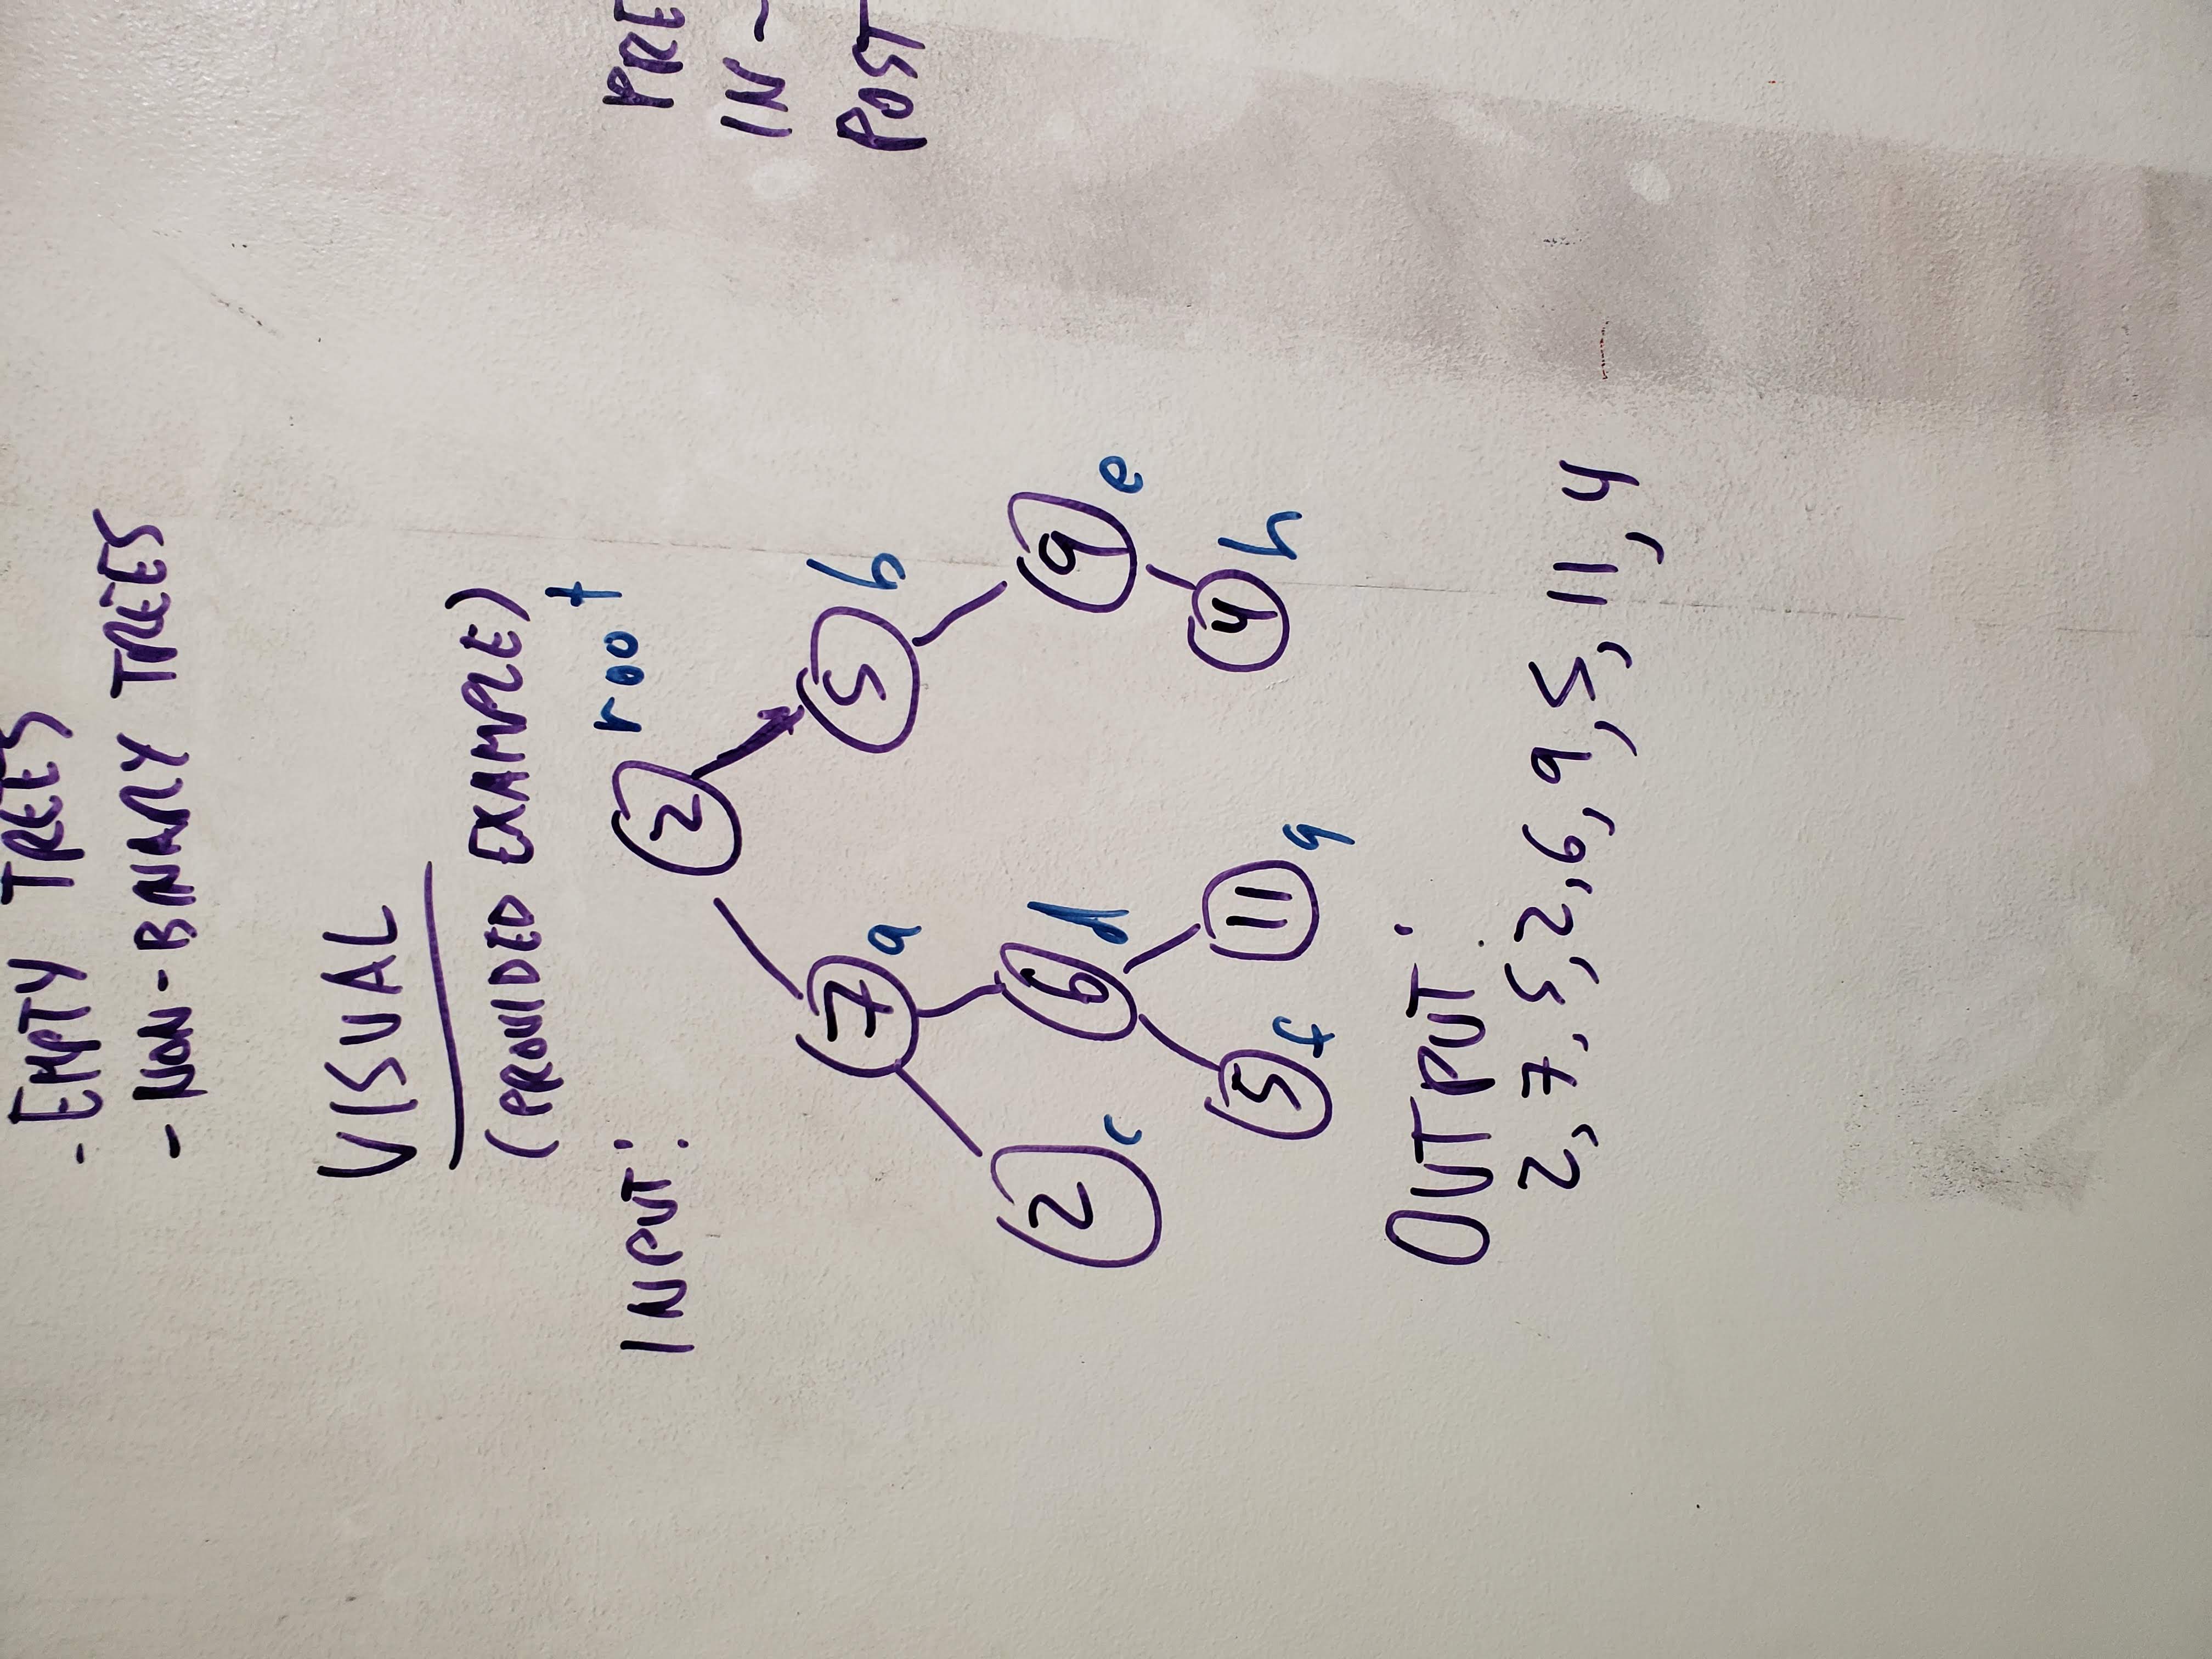 - EMPTY TREES
- NON-BINARY TREES
VISUAL
(PROVIDED EXAMPLE)
INPUT:
2 root
7 a 5 b
2 c 6 d 9 e
5 f 11 g 4 h
PRE
IN-
POST
OUTPUT:
2, 7, 5, 2, 6, 9, 5, 11, 4